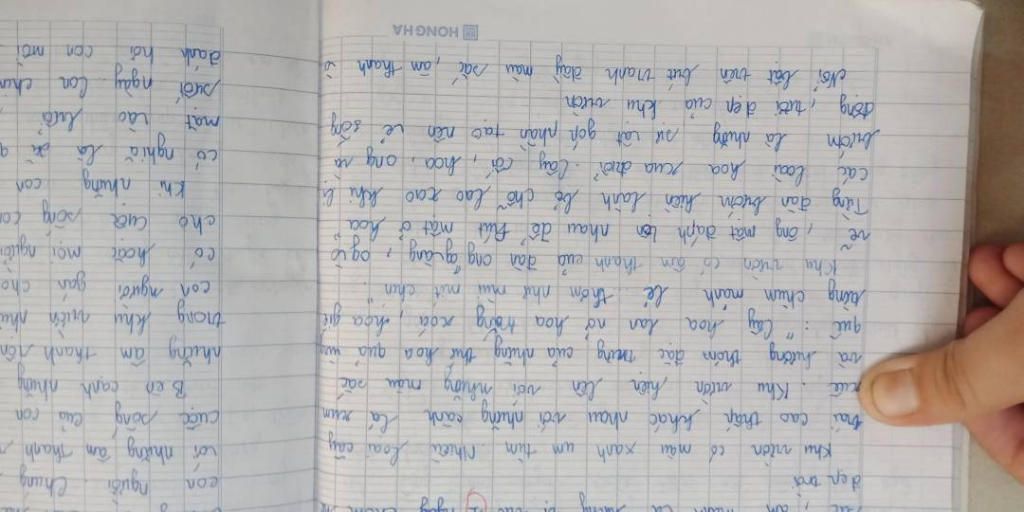 đẹp trời
Khu vườn có màu xanh um tùm. Nhiều loài cây
trái cao thấp khác nhau với những cành lá xum
xuê. Khu vườn hiện lên với những màu sắc
và hương thơm đặc trưng của những thứ hoa quả
quê: "Cây hoa lan nở hoa trắng xóa, hoa giẻ
từng chùm mảnh dẻ. thơm như mùi mít chín..
Khu vườn có âm thanh của đàn ong vàng, ong vò
vẽ, ong mật đánh lộn nhau để hút mật ở hoa
Từng đàn bướm hiền lành bỏ chỗ lao xao khi bị
các loài hoa xua đuổi. Cây cối, hoa, ong và
bướm là những sự vật góp phần tạo nên vẻ sống
động, tươi đẹp của khu vườn
Nổi bật trên bức tranh đầy màu sắc, âm thanh
HONGHA
con người. Chung
với những âm thanh
cuộc sống của con
Bên cạnh những
những âm thanh
trong khu vườn như
con người gắn cho
có hoặc mọi người
cho cuộc sống con
Khi những con
có nghĩa là
mặt vào lưới
ngày
đánh hồi con mồi